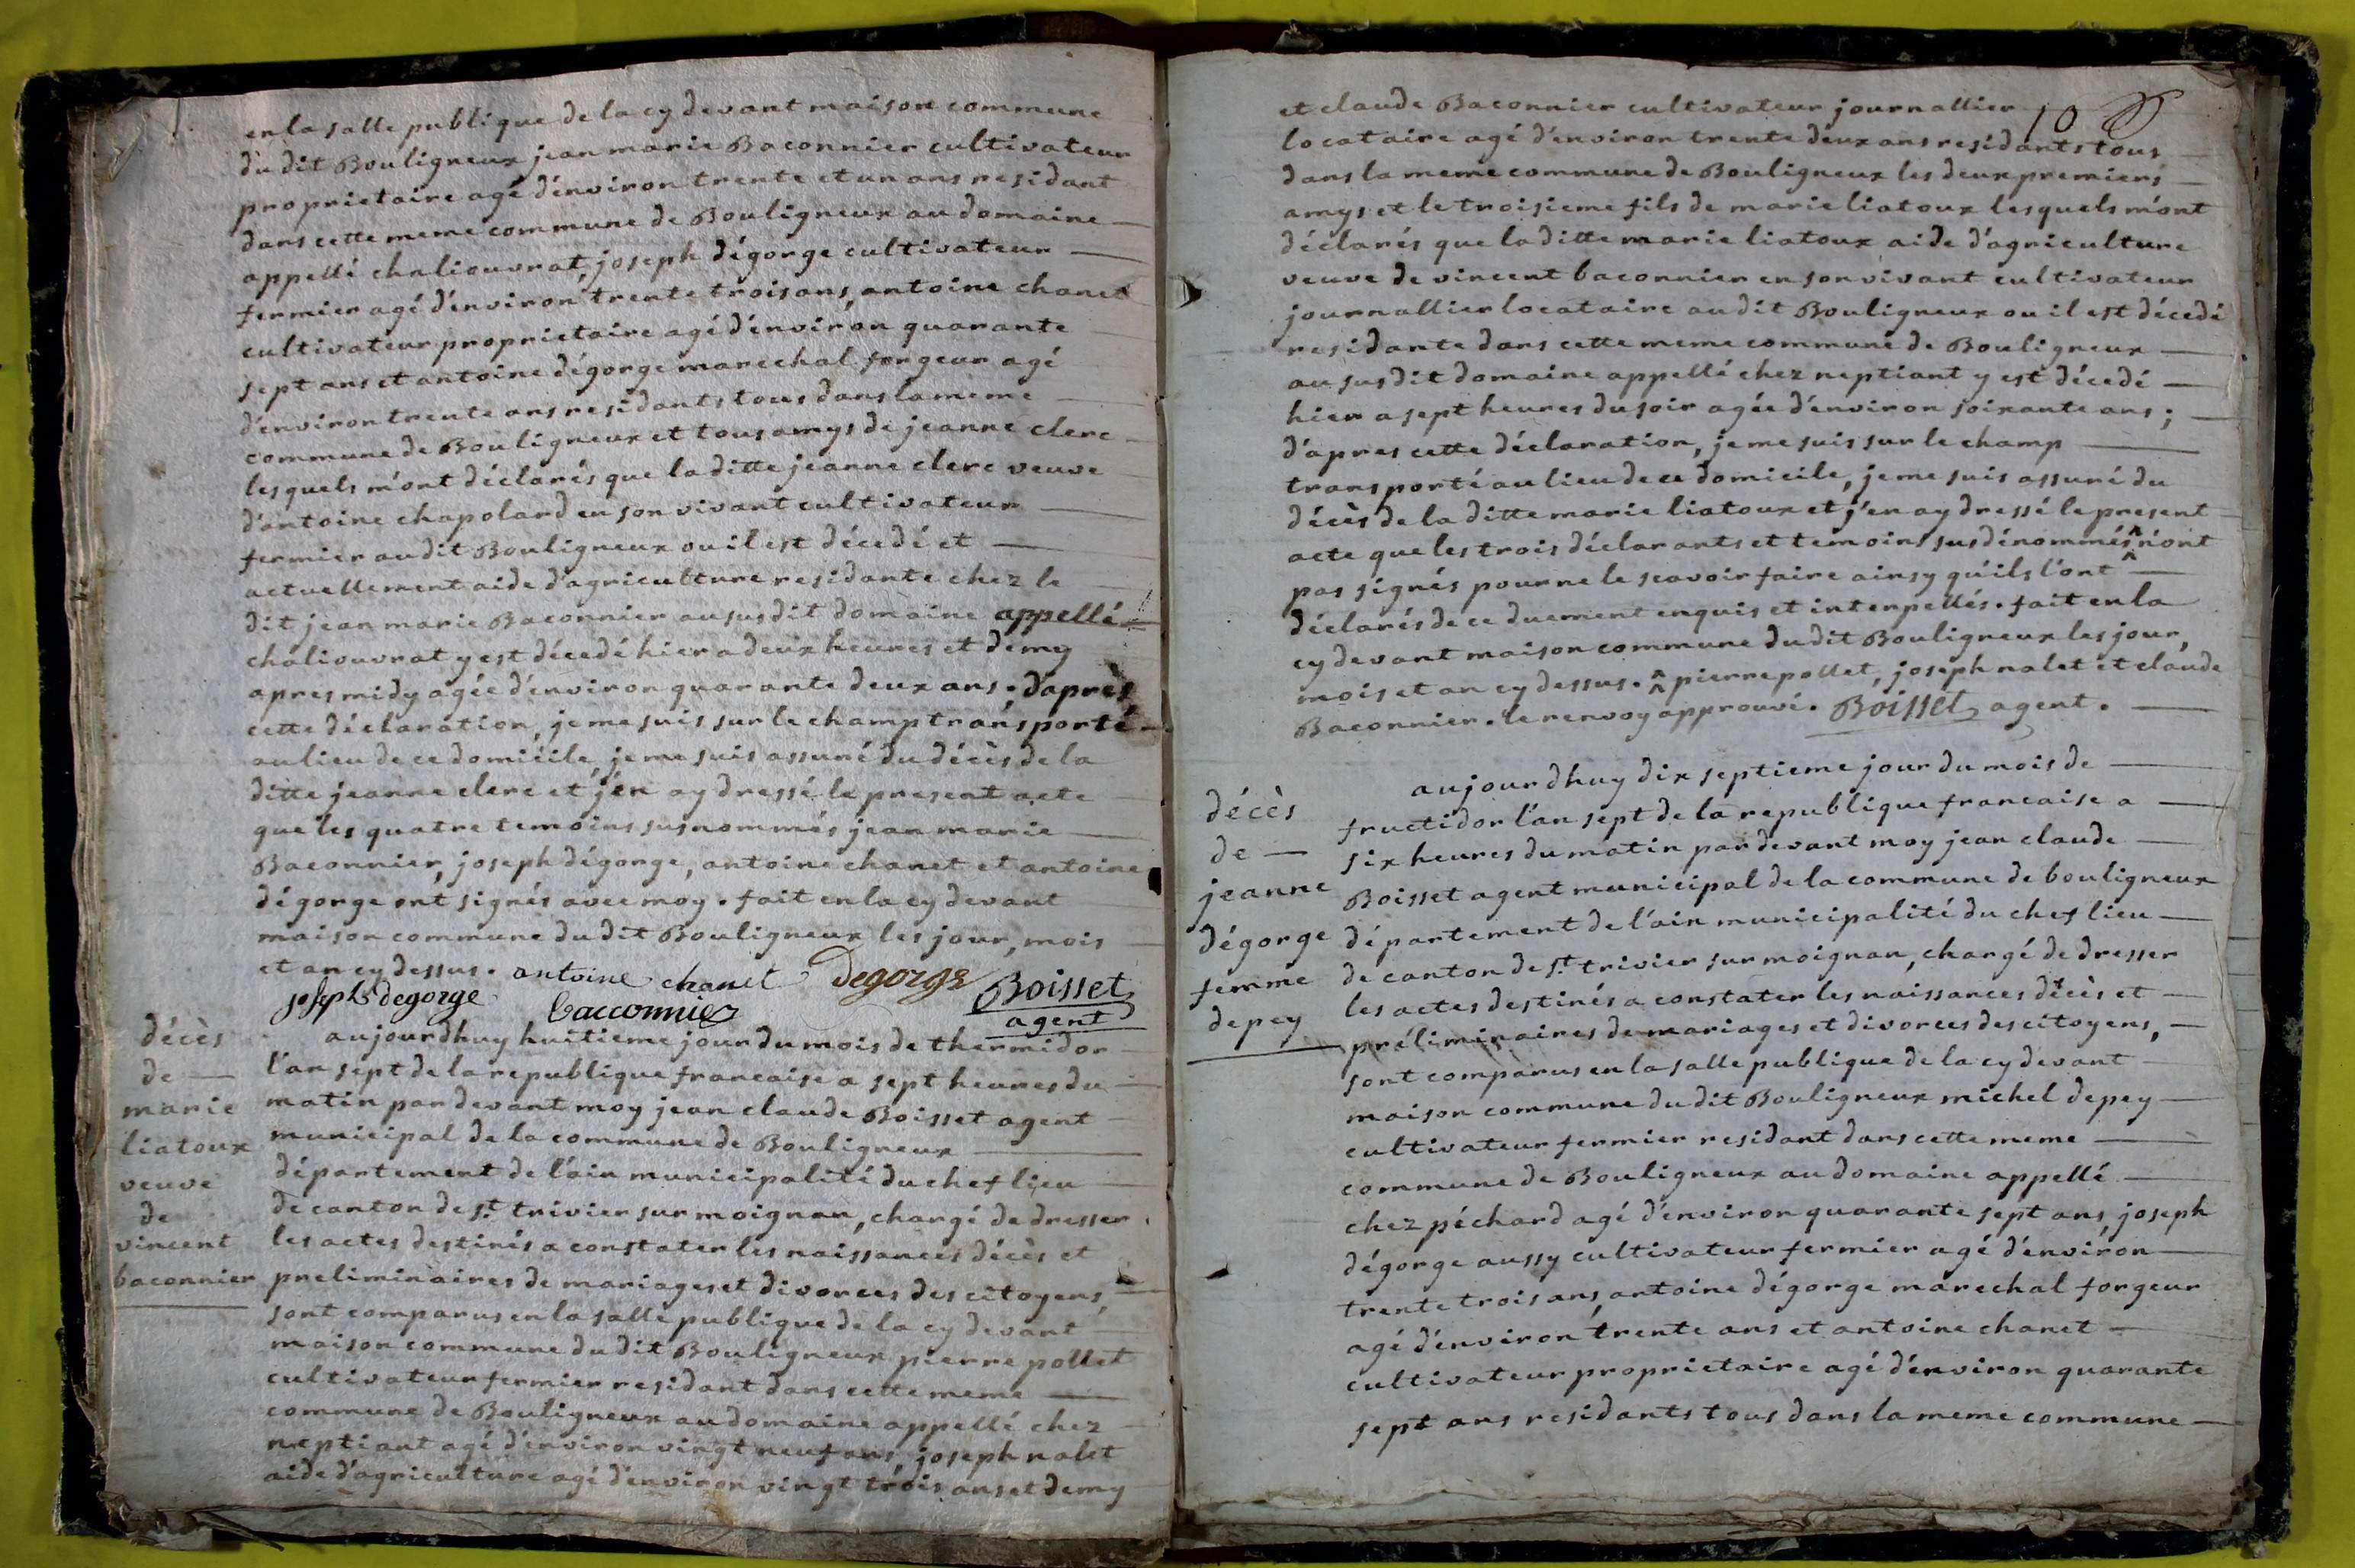 en la salle publique de la cy devant maison commune
du dit Bouligneux jean marie Baconnier cultivateur
proprietaire agé d'environ trente et un ans residant
dans cette meme commune de Bouligneux au domaine
appellé chaliouvrat, joseph dégorge cultivateur
fermier agé d'environ trente trois ans, antoine chanet
cultivateur proprietaire agé d'environ quarante
sept ans et antoine dégorge marechal forgeur agé
d'environ trente ans residants tous dans la meme
commune de Bouligneux et tous amys de jeanne clerc
lesquels m'ont déclarés que la ditte jeanne clerc veuve
d'antoine chapolard en son vivant cultivateur
fermier au dit Bouligneux ou il est décedé et
actuellement aide d'agriculture residante chez le
dit jean marie Baconnier au susdit domaine appellé
chaliouvrat y est décedé hier a deux heures et demy
apres midy agée d'environ quarante deux ans; d'après
cette déclaration, je me suis sur le champ transporté
au lieu de ce domicile, je me suis assuré du décès de la
ditte jeanne clerc et j'en ay dressé le present acte
que les quatre temoins susnommés jean marie
Baconnier, joseph dégorge, antoine chanet et antoine
dégorge ont signés avec moy. fait en la cy devant
maison commune du dit Bouligneux les jour, mois
et an cy dessus. antoine chanet Degorge Boisset
joseph degorge bacconnier agent
décès
de
marie
liatoux
veuve
de
vincent
baconnier
aujourdhuy huitieme jour du mois de thermidor
l'an sept de la republique francaise a sept heures du
matin par devant moy jean claude Boisset agent
municipal de la commune de Bouligneux
département de l'ain municipalité du chef lieu
de canton de st. trivier sur moignan, chargé de dresser
les actes destinés a constater les naissances décès et
preliminaires de mariages et divorces des citoyens,
sont comparus en la salle publique de la cy devant
maison commune du dit Bouligneux pierre pollet
cultivateur fermier residant dans cette meme
commune de Bouligneux au domaine appellé chez
neptiant agé d'environ vingt neuf ans, joseph nalet
aide d'agriculture agé d'environ vingt trois ans et demy
10
et claude Baconnier cultivateur journallier
locataire agé d'environ trente deux ans residants tous
dans la meme commune de Bouligneux les deux premiers
amys et le troisieme fils de marie liatoux lesquels m'ont
déclarés que la ditte marie liatoux aide d'agriculture
veuve de vincent baconnier en son vivant cultivateur
journallier locataire au dit Bouligneux ou il est décedé
residante dans cette meme commune de Bouligneux
au susdit domaine appellé chez neptiant y est décedé
hier a sept heures du soir agée d'environ soixante ans;
d'apres cette déclaration, je me suis sur le champ
transporté au lieu de ce domicile, je me suis assuré du
décès de la ditte marie liatoux et j'en ay dressé le present
acte que les trois déclarants et temoins susdénommés ^ n'ont
pas signés pour ne le scavoir faire ainsy qu'ils l'ont
déclarés de ce duement enquis et interpellés. fait en la
cy devant maison commune du dit Bouligneux les jour,
mois et an cy dessus. ^ pierre pollet, joseph nalet et claude
Baconnier. le renvoy approuvé. Boisset agent.
décès
de
jeanne
dégorge
femme
depey
aujourdhuy dix septieme jour du mois de
fructidor l'an sept de la republique francaise a
six heures du matin par devant moy jean claude
Boisset agent municipal de la commune de bouligneux
département de l'ain municipalité du chef lieu
de canton de st. trivier sur moignan, chargé de dresser
les actes destinés a constater les naissances décès et
préliminaires de mariages et divorces des citoyens,
sont comparus en la salle publique de la cy devant
maison commune du dit Bouligneux michel depey
cultivateur fermier residant dans cette meme
commune de Bouligneux au domaine appellé
chez péchard agé d'environ quarante sept ans, joseph
dégorge aussy cultivateur fermier agé d'environ
trente trois ans, antoine dégorge marechal forgeur
agé d'environ trente ans et antoine chanet
cultivateur proprietaire agé d'environ quarante
sept ans residants tous dans la meme commune